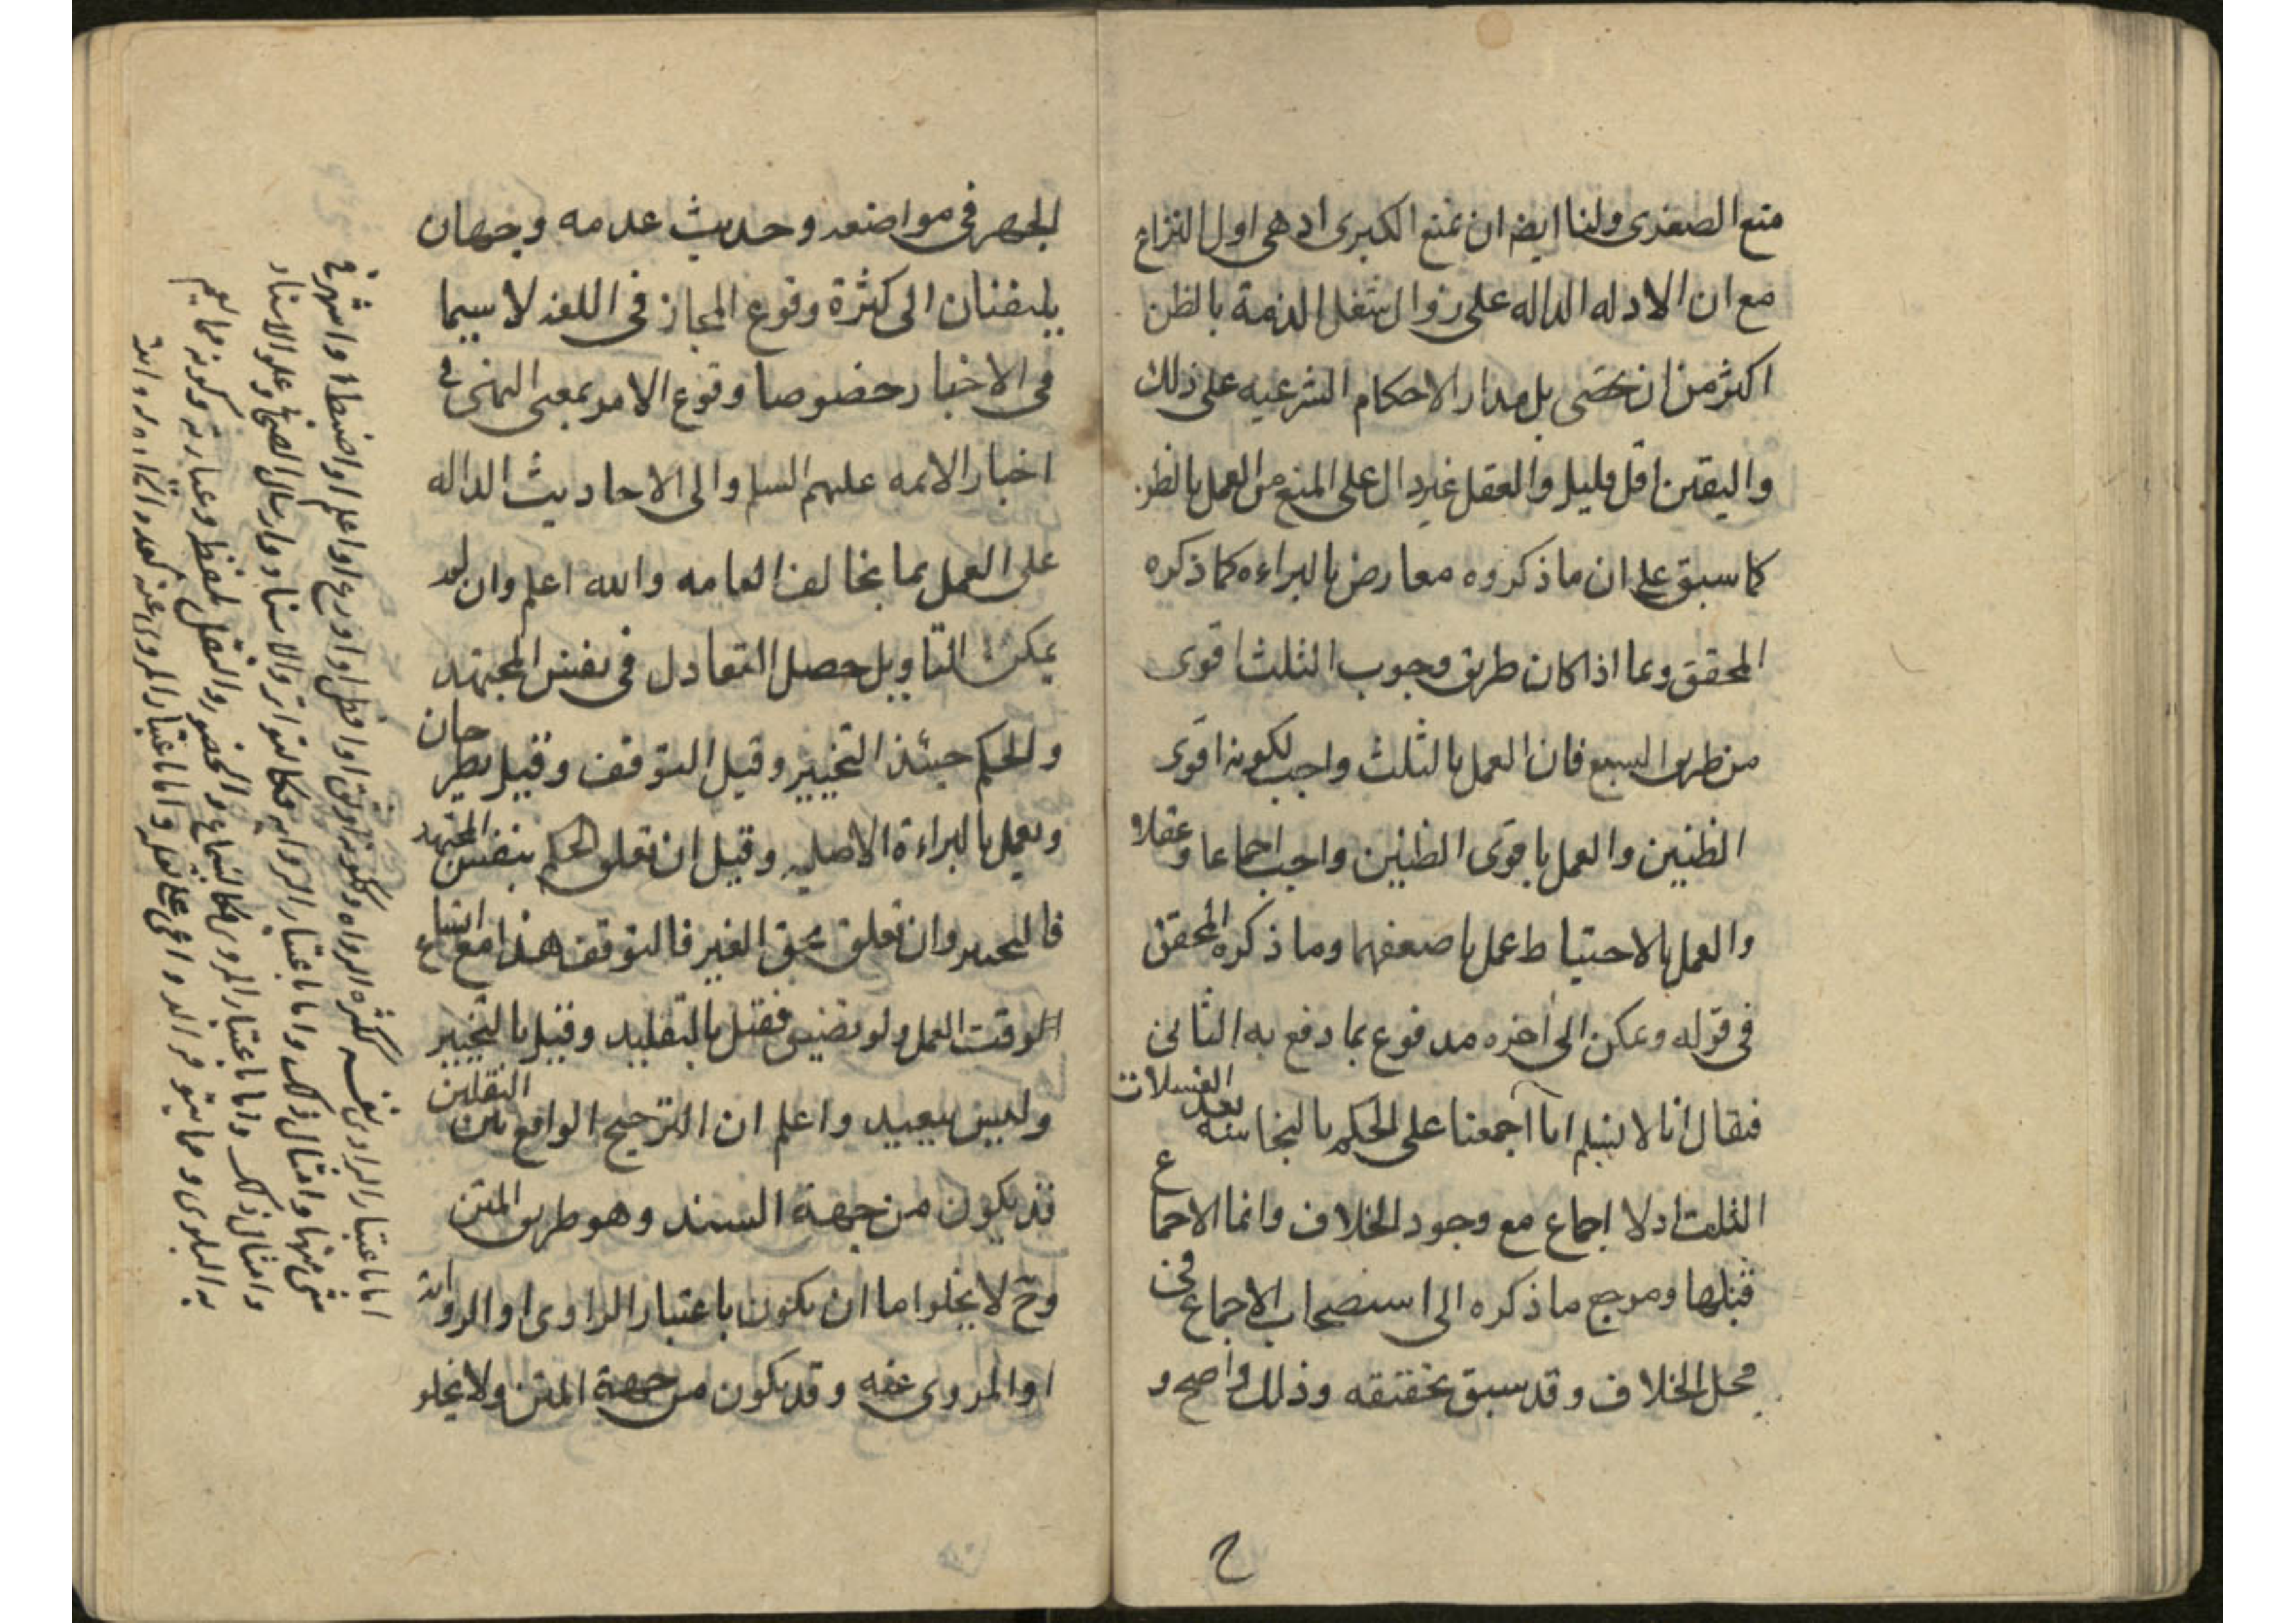 منع الصغرى ولنا ايضا ان نمنع الكبرى اذ هى اول النزاع
مع ان الادله الداله على زوال شغل الذمة بالظن
اكثر من ان تحصى بل مدار الاحكام الشرعيه على ذلك
واليقين اقل قليل والعقل غير دال على المنع من العمل بالظن
كما سبق على ان ما ذكروه معارض بالبراءه كما ذكره
المحقق وبما اذا كان طريق وجوب الثلث اقوى
من طريق السبع فان العمل بالثلث واجب لكونه اقوى
الظنين والعمل باقوى الظنين واجب اجماعا وعقلا
والعمل بالاحتياط عمل باضعفهما وما ذكره المحقق
فى قوله ويمكن الى اخره مدفوع بما دفع به الثانى
فقال انا لا نسلم انا اجمعنا على الحكم بالنجاسة بعد الغسلات
الثلث اذ لا اجماع مع وجود الخلاف وانما الاجماع
قبلها ومرجع ما ذكره الى استصحاب الاجماع فى
محل الخلاف وقد سبق تحقيقه وذلك واضح و
ح
الجهر فى مواضعه وحديث عدمه وجهان
يلتفتان الى كثرة وقوع المجاز فى اللغه لا سيما
فى الاخبار خصوصا وقوع الامر بمعنى النهى فى
اخبار الائمه عليهم السلم والى الاحاديث الداله
على العمل بما يخالف العامه والله اعلم وان لم
يمكن التاويل حصل التعادل فى نفس المجتهد
والحكم حينئذ التخيير وقيل التوقف وقيل يطرحان
ويعمل بالبراءة الاصليه وقيل ان تعلق الحكم بنفس المجتهد
فالتخيير وان تعلق بحق الغير فالتوقف هذا مع اتساع
الوقت العمل ولو تضيق فقيل بالتقليد وقيل بالتخيير
وليس ببعيد واعلم ان الترجيح الواقع بين النقلين
قد يكون من جهة السند وهو طريق المتن
وح لا يخلو اما ان يكون باعتبار الراوى او الرواية
او المروى عنه وقد يكون من جهة المتن ولا يخلو
اما باعتبار الراوى نفسه ككثره الرواه وككونه اوثق او افطن او اورع او اعلم او اضبط او اشهر فى
شئ منها وامثال ذلك واما باعتبار الروايه فكالتواتر والاسناد وارسال وعلو الاسناد
وامثال ذلك واما باعتبار المروى فكالسماع والحضور والنقل بلفظ وعبارته وكونه مما يعم
به البلوى